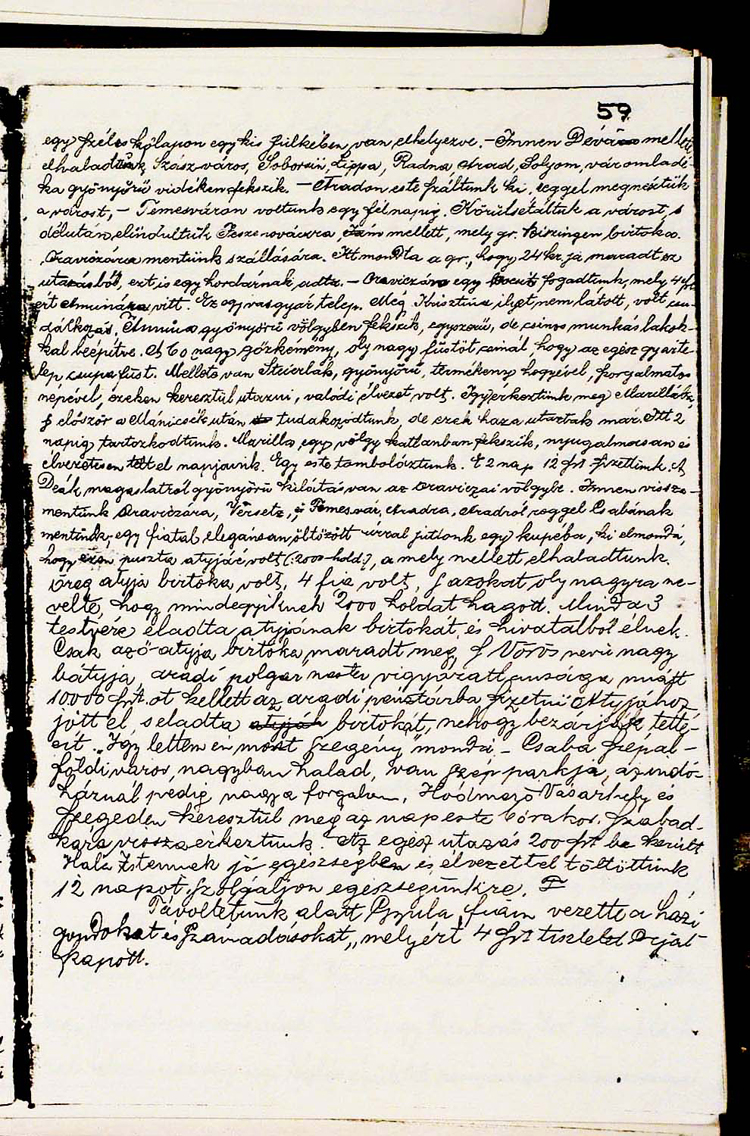 59
egy széles kőlapon egy kis fülkében van elhelyezve. – Innen Déva mellett
elhaladtunk, Szászváros, Soborsin, Lippa, Radna, Arad, Solyom, vár omladé-
ka gyönyörű vidéken fekszik. – Aradon este szálltunk ki, reggel megnéztük
a várost, – Temesváron voltunk egy fél napig. Körülsétáltuk a várost, s
délután elindultunk mellett, mely gr. Bissingen birtoka.
Oraviczára mentünk szállására. Itt mondta a gr., hogy 24 kr. ja maradt az
utazásból, ezt is egy hordárnak adta. – Oraviczán egy fogadtunk, mely 4 frt
ért Aninára vitt. Ez egy vasgyár telep. Még Krisztina ilyet nem látott, volt cso-
dálkozás. Anina gyönyörű völgyben fekszik, egyszerű, de csinos munkás lakok-
kal beépítve. A 60 nagy gőzkémény, oly nagy füstöt csinál, hogy az egész gyárte-
lep csupa füst. Mellette van Steierlak, gyönyörű, termékeny hegyével, szorgalmatos
népével, ezeken keresztül utazni, valódi élvezet volt. Így érkeztünk meg Marillába,
s először a Mánicsék után tudakozódtunk, de ezek haza utaztak már. Itt 2
napig tartózkodtunk. Marilla egy völgy katlanban fekszik, nyugalmasan és
élvezetesen telt el napjaink. Egy este tombolóztunk. E 2 nap 12 frt fizettünk. A
Deák magaslatról gyönyörű kilátás van az oraviczai völgybe. Innen vissza-
mentünk Oraviczára, Versetz, és Temesvár, Aradra, Aradról reggel Csabának
mentünk, egy fiatal elegánsan öltözött úrral jutánk egy kupéba, ki elmondá,
hogy ezen puszta atyjáé volt (:2000 hold:), a mely mellett elhaladtunk.
Öreg atyja birtoka volt, 4 fia volt, s azokat oly nagyra ne-
velte, hogy mindegyiknek 2000 holdat hagyott. Mind a 3
testvére eladta atyjának birtokát, és hivatalból élnek.
Csak az ő atyja birtoka maradt meg, s Vörös nevű nagy
bátyja, aradi polgármester vigyázatlansága miatt
10000 frt. ot kellett az aradi pénztárba fizetni. Atyjához
jött el s eladta atyján birtokát, nehogy bezárják, tette
ezt. Így lettem én most szegény, mondá. – Csaba szép al-
földi város, nagyban halad, van szép parkja, az indó-
háznál pedig nagy a forgalom, Hódmező Vásárhely és
Szegeden keresztül még az nap este 6 órakor Szabad-
kára vissza érkeztünk. Az egész utazás 200 frt. ba került
Hála Istennek jó egészségben és élvezettel töltöttünk
12 napot, szolgáljon egészségünkre.
Távollétünk alatt Gyula fiam vezette a házi
gondokat és számadásokat, melyért 4 frt tisztelet díjat
kapott.